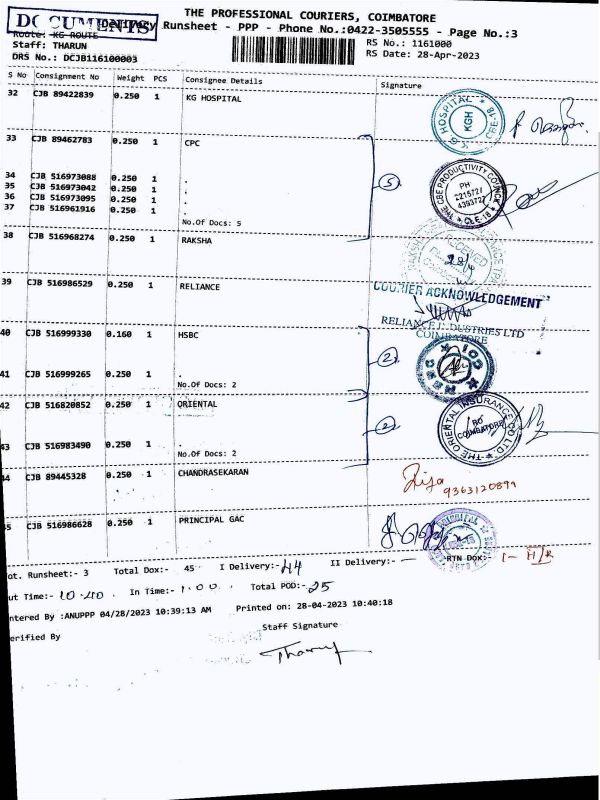 THE PROFESSIONAL COURIERS, COIMBATORE
DOCUMENTS
Delivery Runsheet - PPP - Phone No.:0422-3505555 - Page No.:3
Route: KG ROUTE
RS No.: 1161000
Staff: THARUN
RS Date: 28-Apr-2023
DRS No.: DCJB116100003
S No Consignment No Weight PCS Consignee Details Signature
32 CJB 89422839 0.250 1 KG HOSPITAL
KGH
33 CJB 89462783 0.250 1 CPC
34 CJB 516973088 0.250 1 .
35 CJB 516973042 0.250 1 .
36 CJB 516973095 0.250 1 .
37 CJB 516961916 0.250 1 .
No.Of Docs: 5
5
THE CBE PRODUCTIVITY COUNCIL
PH
221572/
439372
CBE.18
38 CJB 516968274 0.250 1 RAKSHA
28/4
39 CJB 516986529 0.250 1 RELIANCE
COURIER ACKNOWLEDGEMENT
RELIANCE INDUSTRIES LTD
COIMBATORE
40 CJB 516999330 0.160 1 HSBC
2
41 CJB 516999265 0.250 1 .
No.Of Docs: 2
42 CJB 516820852 0.250 1 ORIENTAL
2
THE ORIENTAL INSURANCE CO LTD
RO
COIMBATORE
43 CJB 516983490 0.250 1 .
No.Of Docs: 2
44 CJB 89445328 0.250 1 CHANDRASEKARAN
9363120899
45 CJB 516986628 0.250 1 PRINCIPAL GAC
Tot. Runsheet:- 3 Total Dox:- 45 I Delivery:- 44 II Delivery:- — RTN Dox:- 1-
Out Time:- 10.40 In Time:- 1.00 Total POD:- 25
Entered By :ANUPPP 04/28/2023 10:39:13 AM Printed on: 28-04-2023 10:40:18
Verified By
Staff Signature